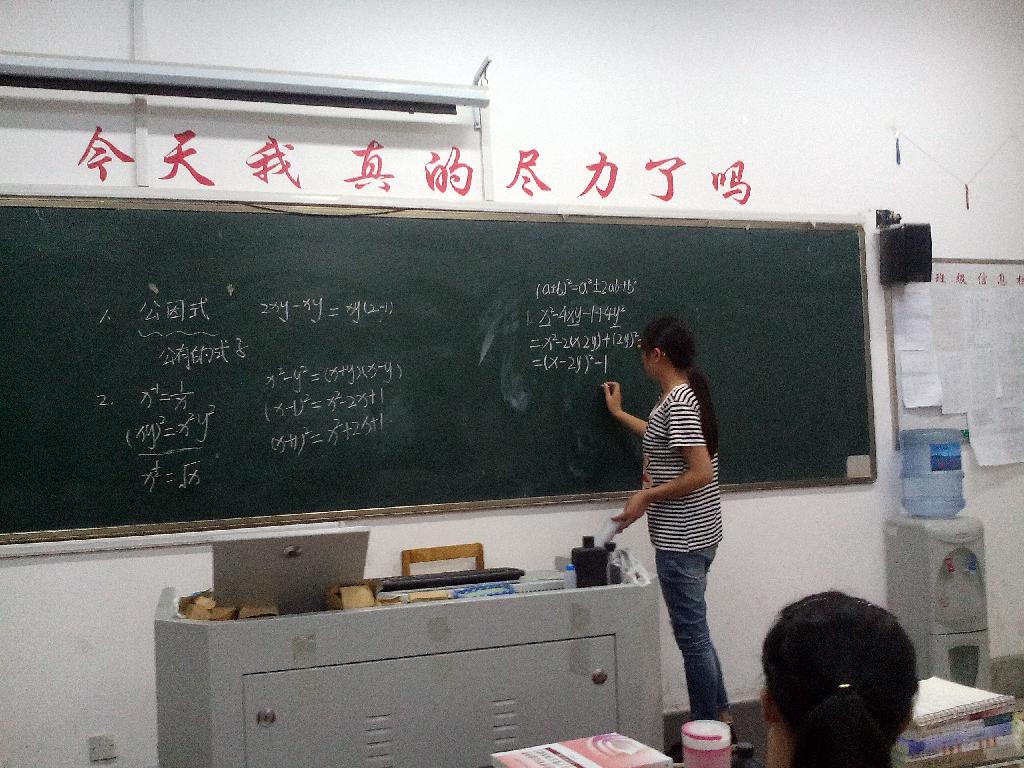 今天我真的尽力了吗
班级信息栏
1. 公因式
公有的式子
2xy-xy=xy(2-1)
2. x⁻¹=1/x
(xy)²=x²y²
x^½=√x
x²-y²=(x+y)(x-y)
(x-1)²=x²-2x+1
(x+1)²=x²+2x+1
(a±b)²=a²±2ab+b²
1. x²-4xy-1+4y²
=x²-2(x2y)+(2y)²
=(x-2y)²-1